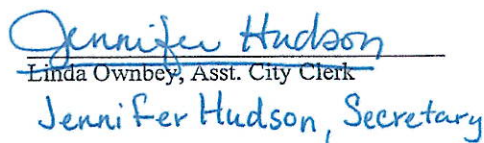 Jennifer Hudson
Linda Ownbey, Asst. City Clerk
Jennifer Hudson, Secretary